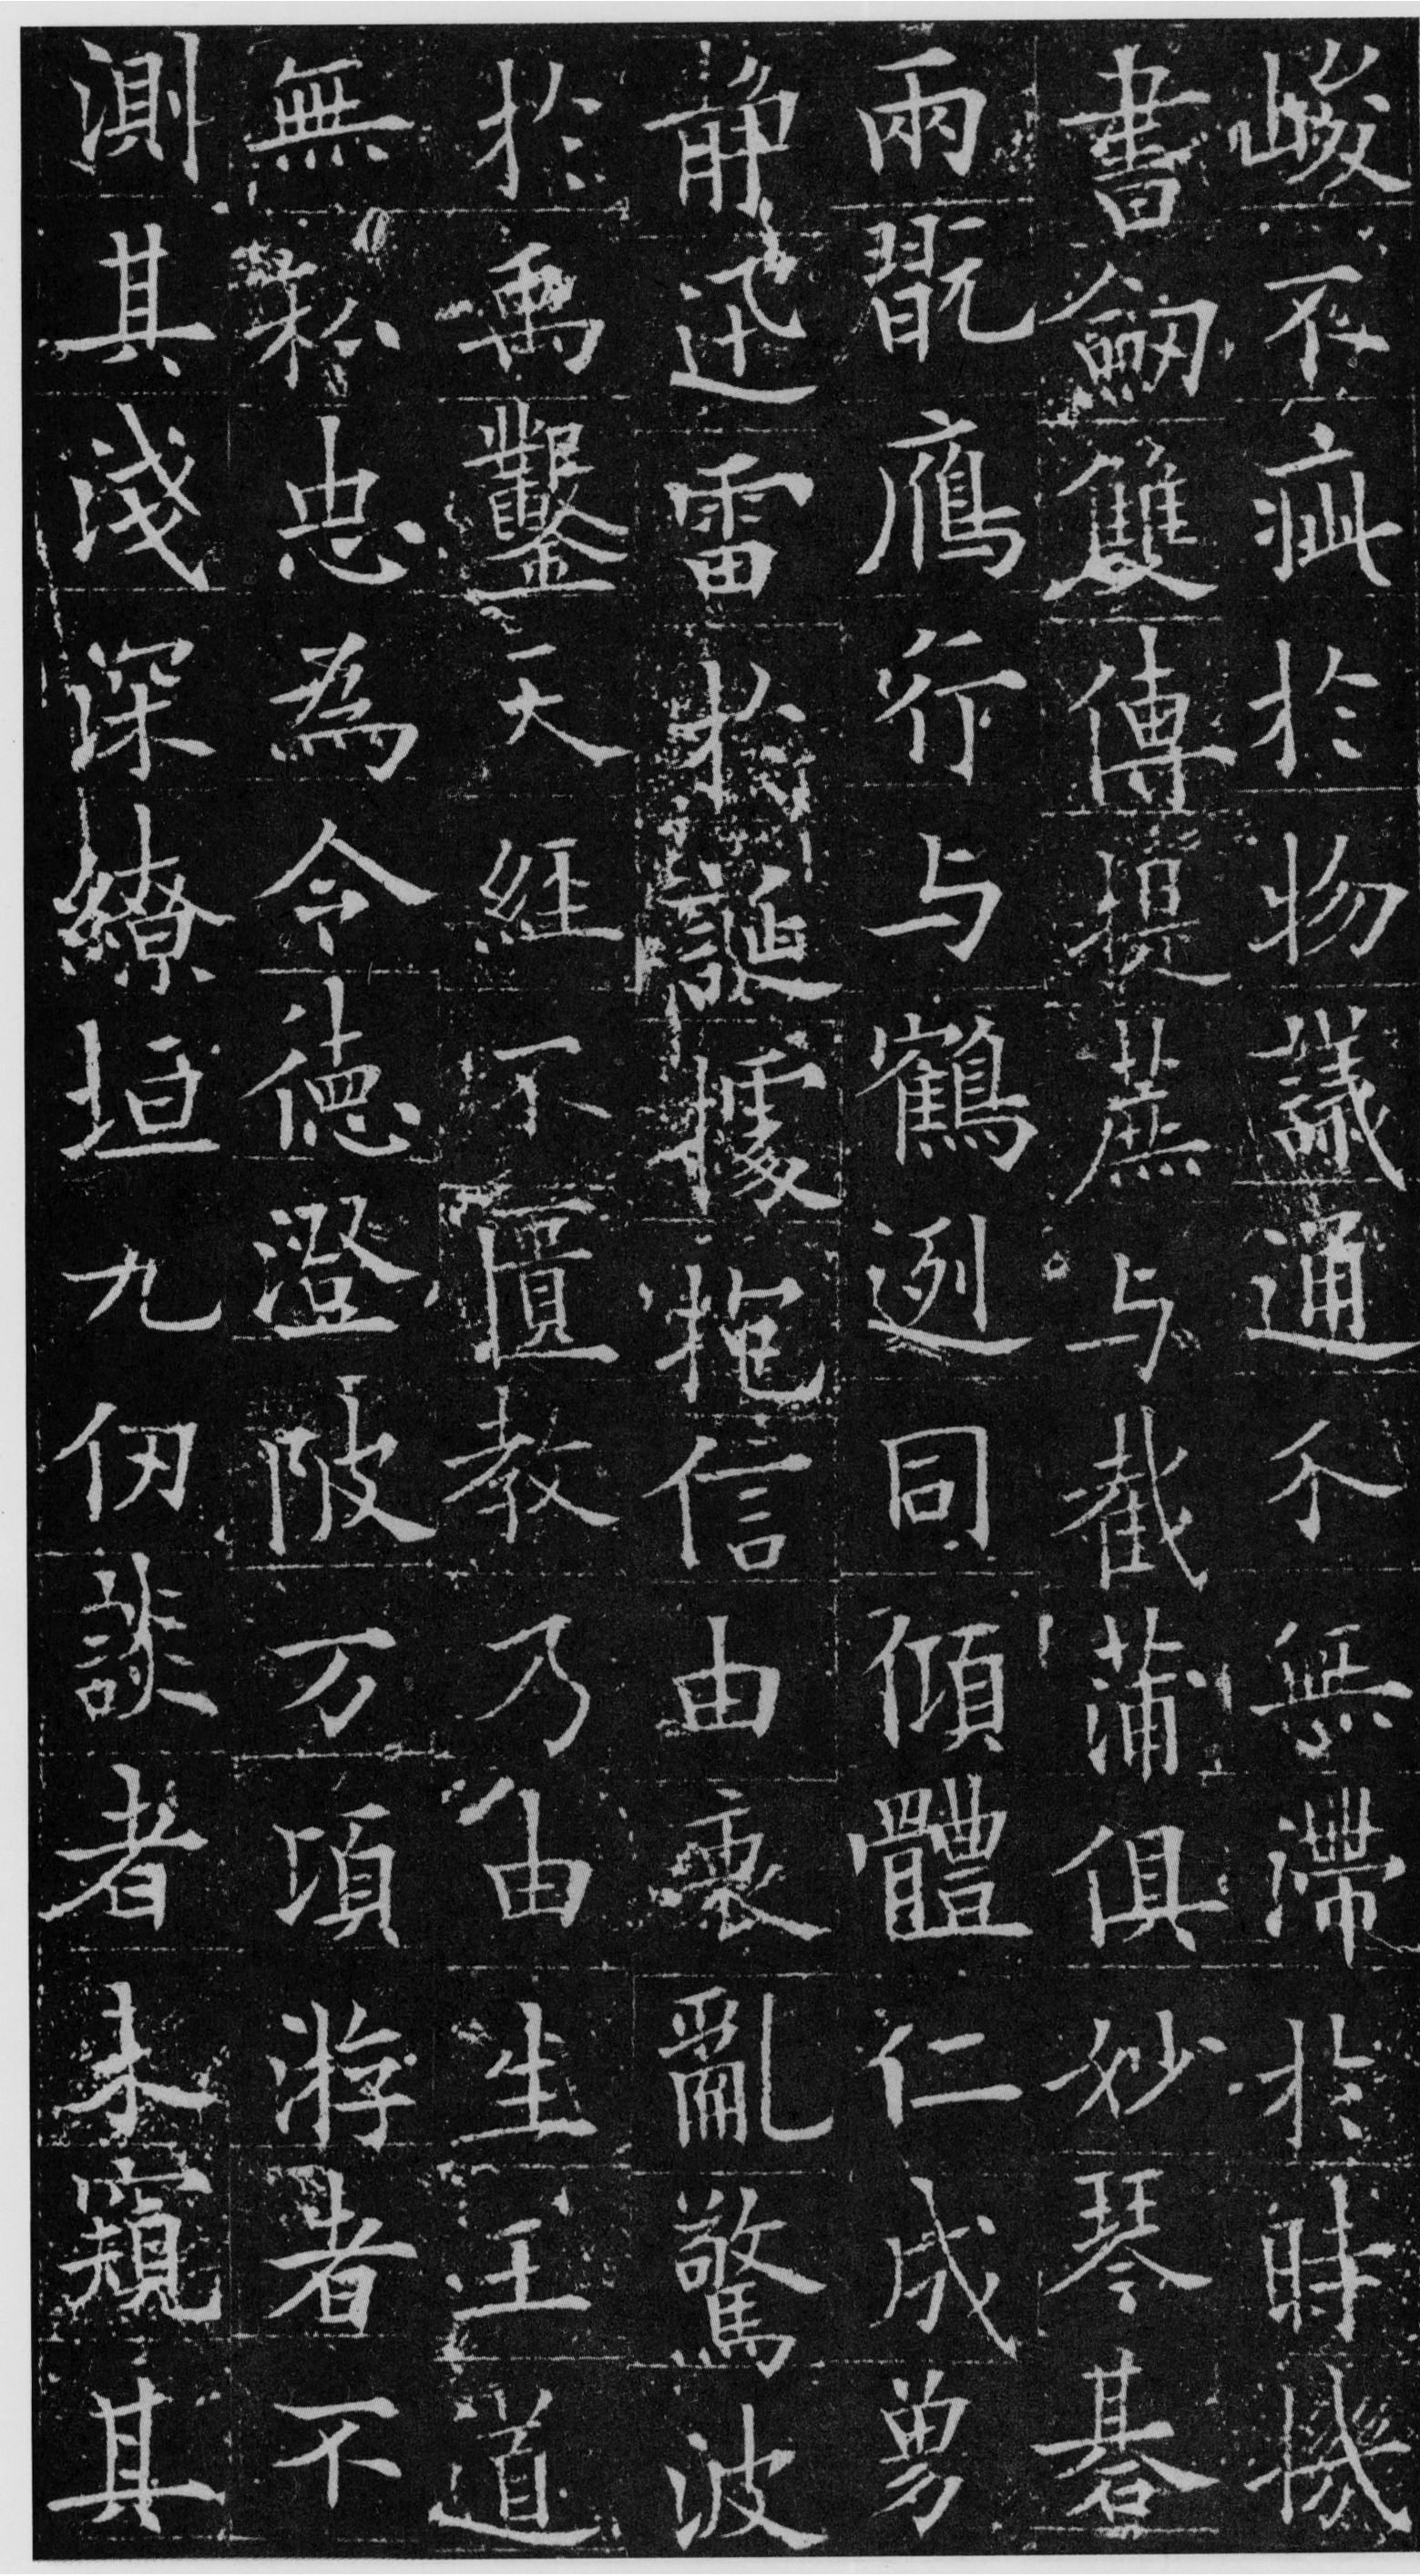 峻不疵於物議通不無滯於時機
書劒雙傳提蒸与截蒲俱妙琴碁
兩翫鴈行与鶴迾同傾體仁成勇
静迅雷於誕據抱信由衷亂驚波
於禹鑿天經不匱教乃由生王道
無私忠為令德澄陂万頃游者不
測其淺深繚垣九仞談者未窺其